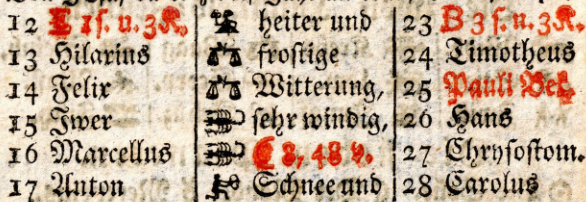 12 E 1 s. u. 3 K. heiter und 23 B 3 s. n. 3 K.
13 Hilarius frostige 24 Timotheus
14 Felix Witterung, 25 Pauli Bek.
15 Iwer sehr windig, 26 Hans
16 Marcellus 8, 48 v. 27 Chrysostom.
17 Anton Schnee und 28 Carolus